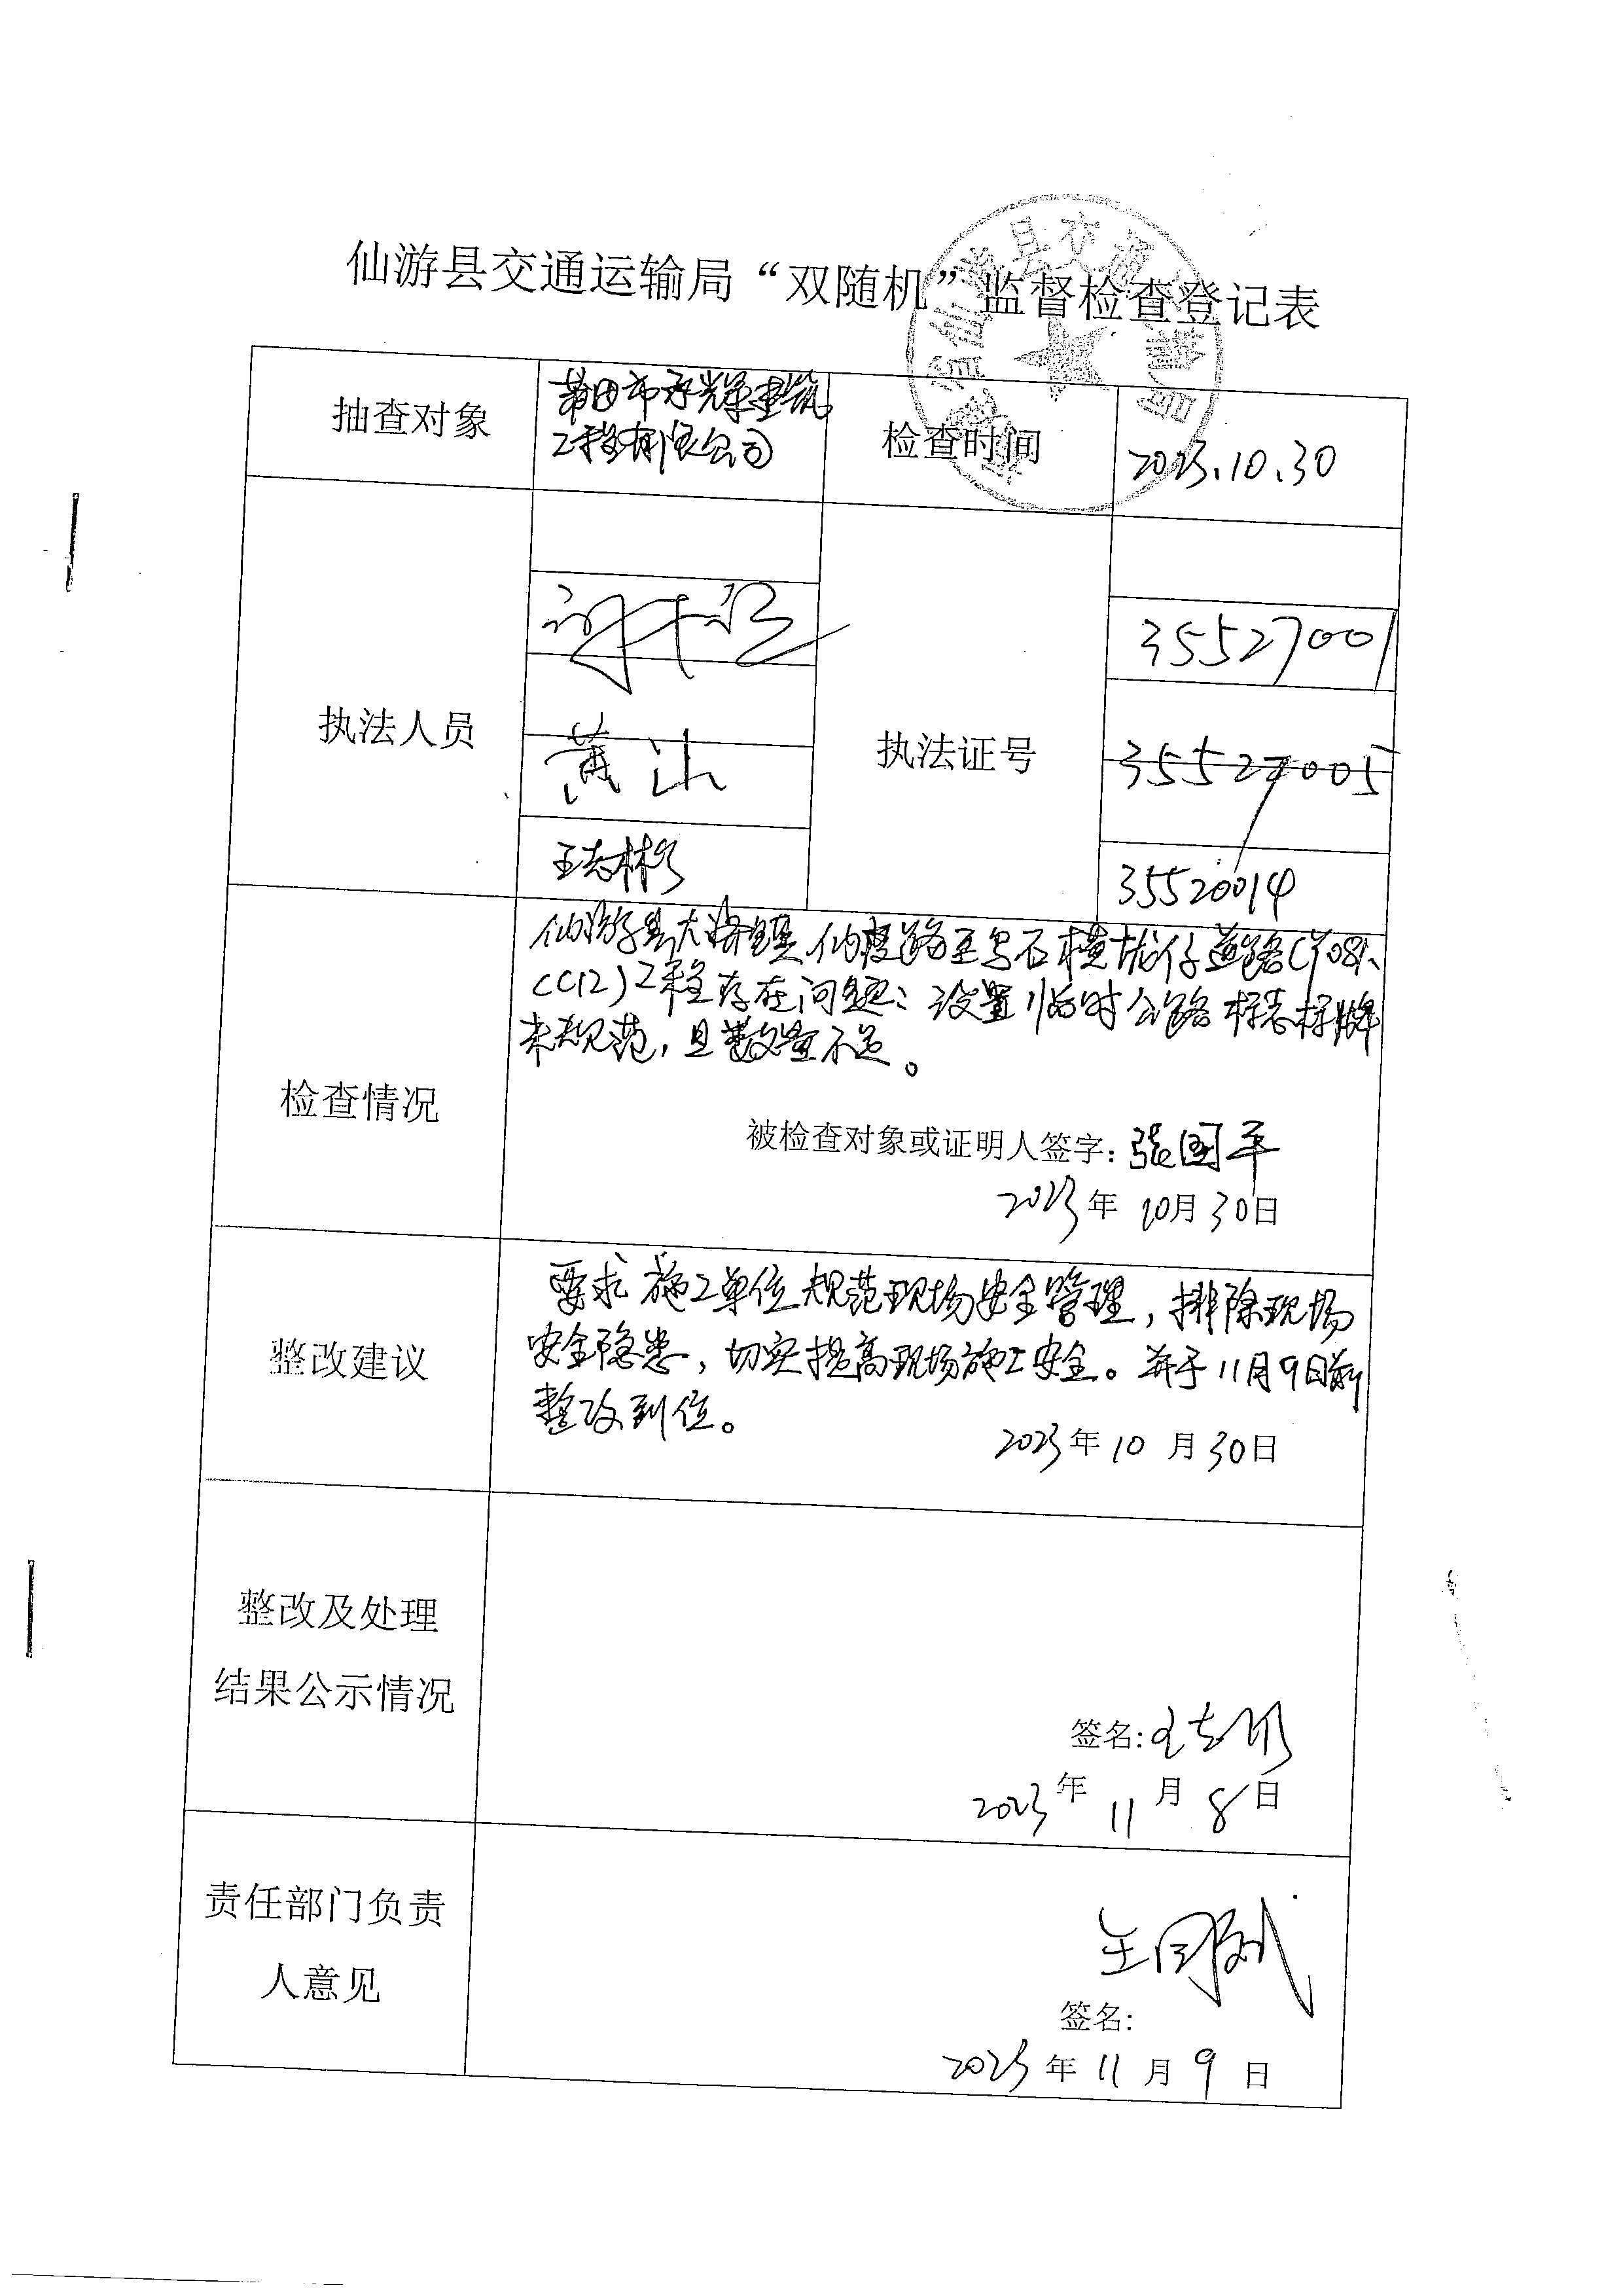 仙游县交通运输局“双随机”监督检查登记表
抽查对象
莆田市承辉建筑
工程有限公司
检查时间
2023.10.30
执法人员
执法证号
35527001
黄
35527005
王志彬
35520014
检查情况
仙游县大济镇仙度路至乌石横垅仔道路(Y081、
CC12)工程存在问题：设置临时公路标志标牌
未规范，且数量不足。
被检查对象或证明人签字：张国平
2023年10月30日
整改建议
要求施工单位规范现场安全管理，排除现场
安全隐患，切实提高现场施工安全。并于11月9日前
整改到位。
2023年10月30日
整改及处理
结果公示情况
签名：王志彬
2023年11月8日
责任部门负责
人意见
签名：
2023年11月9日